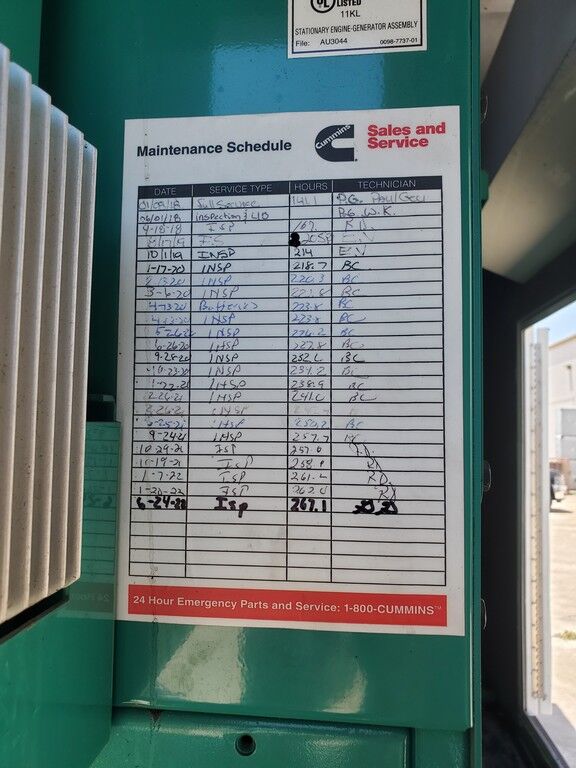 UL LISTED
11KL
STATIONARY ENGINE-GENERATOR ASSEMBLY
File: AU3044 0098-7737-01
Maintenance Schedule Cummins Sales and
Service
DATE SERVICE TYPE HOURS TECHNICIAN
Full Service
06/01/18 inspection
9-18-18 ISP 167 R.D.
F.S E.V
10/1/19 INSP 214 E.V
1-17-20 INSP 218.7 BC
INSP 220.3 BC
3-6-20 INSP BC
4-13-20 Batteries 223.8 BC
INSP 223.8 BC
5-26-20 INSP 226.2 BC
6-26-20 INSP 227.8 BC
9-28-20 INSP 232.6 BC
10-23-20 INSP BC
INSP 238.9 BC
2-26-21 INSP 241.0 BC
INSP
INSP 250.2 BC
9-24-21 INSP 257.7
10-29-21 ISP 257.0 R.D.
ISP RD
1-7-22 ISP RD
1-20-22 ISP RD
6-24-22 Isp 267.1
24 Hour Emergency Parts and Service: 1-800-CUMMINS™